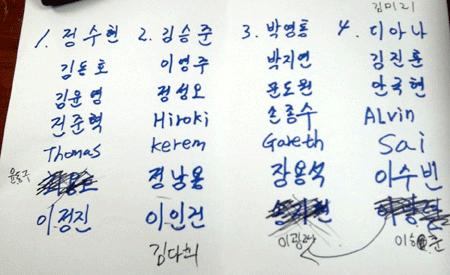 김미리
1. 정수현 2. 김승준 3. 박영롱 4. 디아나
김돈호 이영주 박지연 김진훈
김윤영 정성오 윤도원 안국현
전준혁 Hiroki 손종수 Alvin
Thomas Kerem Gareth Sai
윤동주 정낭용 장용석 이수빈
이정진 이인건
김다희 이광래